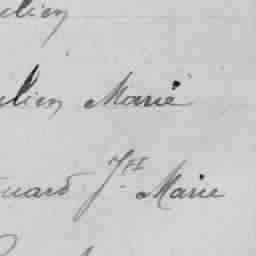 lien
lien Marie
uard Jh Marie